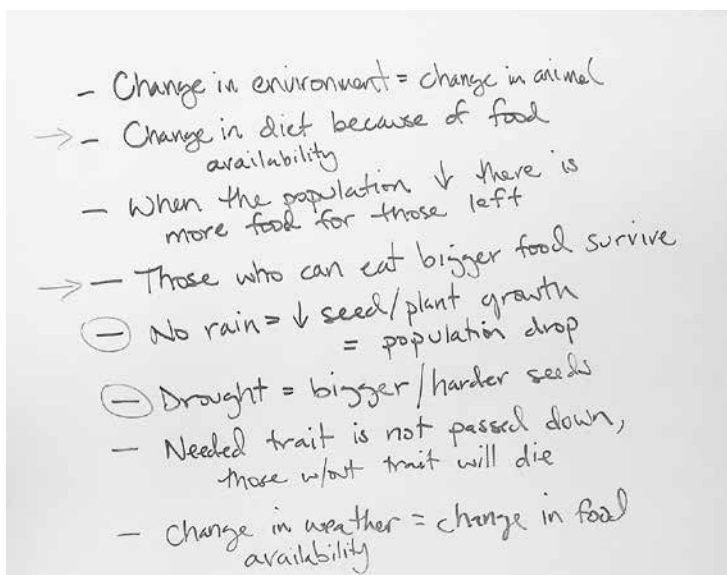 - Change in environment = change in animal
→ - Change in diet because of food
availability
- When the population ↓ there is
more food for those left
→ - Those who can eat bigger food survive
- No rain = ↓ seed/plant growth
= population drop
- Drought = bigger/harder seeds
- Needed trait is not passed down,
those w/out trait will die
- Change in weather = change in food
availability